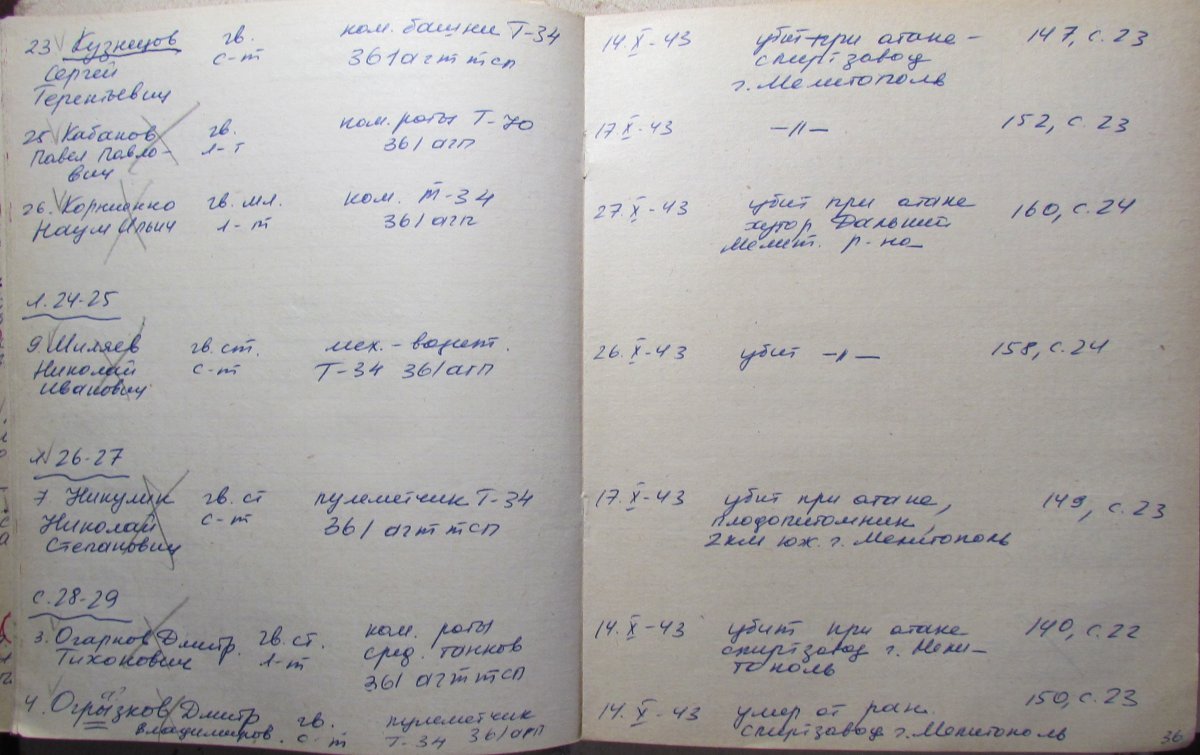 23 Кузнецов гв. ком. башни Т-34
Сергей с-т 36 1 агтттсп
Терентьевич
25 Кабанов гв. ком. роты Т-70
Павел Павло- л-т 36 1 агп
вич
26. Корниенко гв. мл. ком. Т-34
Наум Ильич л-т 36 1 агп
л. 24-25
9. Шиляев гв. ст. мех.-водит.
Николай с-т Т-34 36 1 агп
Иванович
л. 26-27
7. Никулин гв. ст пулеметчик Т-34
Николай с-т 36 1 агтттсп
Степанович
с. 28-29
3. Огарков Дмитр. гв. ст. ком. роты
Тихонович л-т сред. танков
36 1 агтттсп
4. Огрызков Дмитр гв. пулеметчик
Владимиров. с-т Т-34 36 1 агп
14.X-43 убит при атаке - 147, с. 23
спиртзавод
г. Мелитополь
17.X-43 -//- 152, с. 23
27.X-43 убит при атаке 160, с. 24
хутор Дальний
Мелит. р-на
26.X-43 убит -//- 158, с. 24
17.X-43 убит при атаке, 149, с. 23
плодопитомник,
2км юж. г. Мелитополь
14.X-43 убит при атаке 140, с. 22
спиртзавод г. Мели-
тополь
14.X-43 умер от ран. 150, с. 23
спиртзавод г. Мелитополь
36